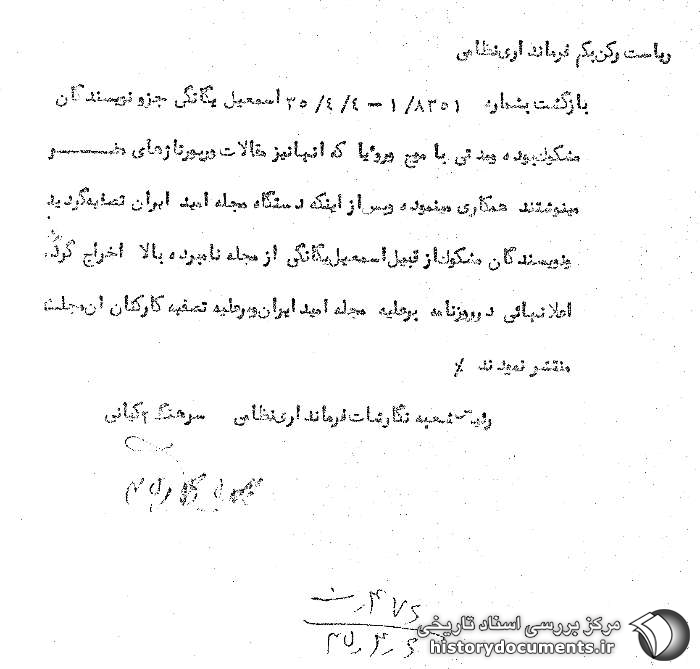 ریاست رکن یکم فرمانداری نظامی
بازگشت بشماره ۱/۸۳۵۱ – ۳۵/٤/٤ اسمعیل یگانگی جزو نویسندگان
مشکوک بوده ومدتی با موج وروئیا که انهانیز مقالات ورپورتاژهای مضـــــر
مینوشتند همکاری مینموده وپس از اینکه دستگاه مجله امید ایران تصفیه گردید
ونویسندگان مشکوک از قبیل اسمعیل یگانگی از مجله نامبرده بالا اخراج
اعلانهائی درروزنامه برعلیه مجله امید ایران وبرعلیه تصفیه کارکنان ان مجله
منتشر نمودند
رئیس شعبه نگارشات فرمانداری نظامی سرهنگ ۲ کیانی
۳۵٫۴٫۶
مرکز بررسی اسناد تاریخی
historydocuments.ir